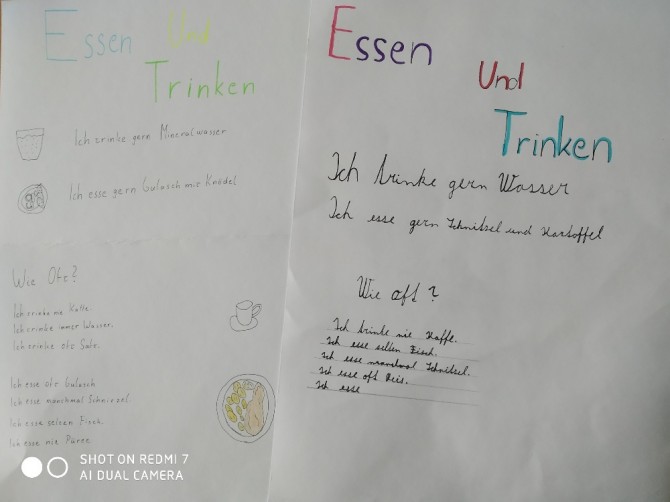 Essen Und
Trinken
Ich trinke gern Mineralwasser
Ich esse gern Gulasch mit Knödel
Wie Oft?
Ich trinke nie Kaffe.
Ich trinke immer Wasser.
Ich trinke oft Saft.
Ich esse oft Gulasch
Ich esse manchmal Schnitzel
Ich esse selten Fisch.
Ich esse nie Püree
SHOT ON REDMI 7
AI DUAL CAMERA
Essen
Und
Trinken
Ich trinke gern Wasser
Ich esse gern Schnitsel und Kartoffel
Wie oft?
Ich trinke nie Kaffe.
Ich esse selten Fisch.
Ich esse manchmal Schnitsel.
Ich esse oft Reis.
Ich esse